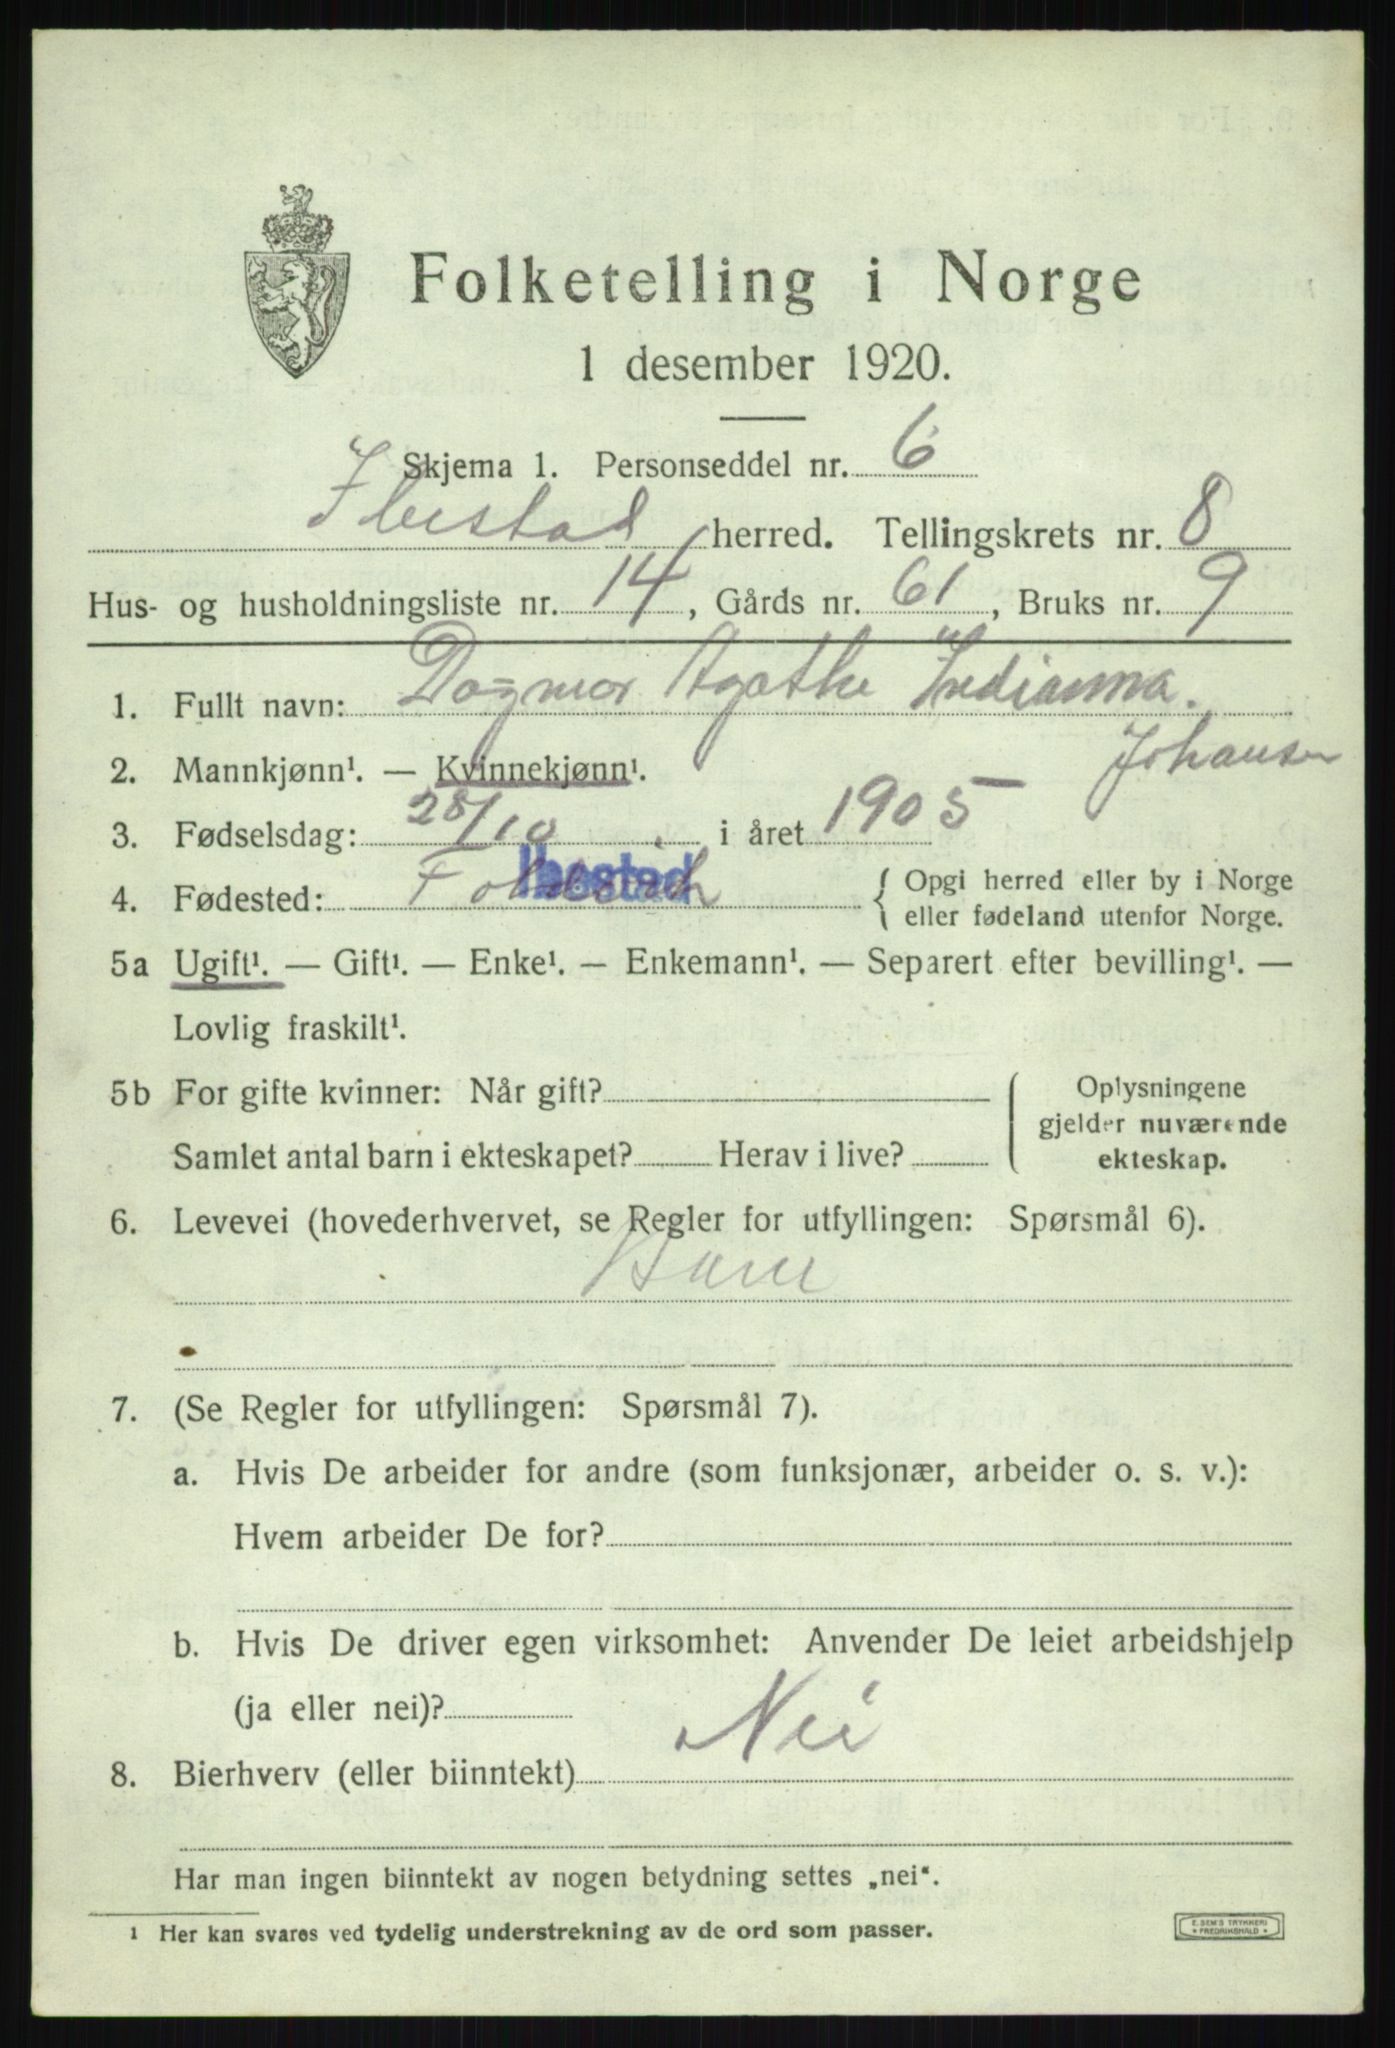 Folketelling i Norge
1 desember 1920.
Skjema 1. Personseddel nr. 6
Ibestad herred. Tellingskrets nr. 8
Hus- og husholdningsliste nr. 14, Gårds nr. 61, Bruks nr. 9
1. Fullt navn: Dagmar Agathe Indianna.
Johansen
2. Mannkjønn¹. — Kvinnekjønn¹.
3. Fødselsdag: 28/10 i året 1905
4. Fødested: Ibestad { Opgi herred eller by i Norge
eller fødeland utenfor Norge.
5a Ugift¹. — Gift¹. — Enke¹. — Enkemann¹. — Separert efter bevilling¹. —
Lovlig fraskilt¹.
5b For gifte kvinner: Når gift? Oplysningene
gjelder nuværende
Samlet antal barn i ekteskapet? Herav i live? ekteskap.
6. Levevei (hovederhvervet, se Regler for utfyllingen: Spørsmål 6).
Barn
7. (Se Regler for utfyllingen: Spørsmål 7).
a. Hvis De arbeider for andre (som funksjonær, arbeider o. s. v.):
Hvem arbeider De for?
b. Hvis De driver egen virksomhet: Anvender De leiet arbeidshjelp
(ja eller nei)?
8. Bierhverv (eller biinntekt) Nei
Har man ingen biinntekt av nogen betydning settes „nei“.
1 Her kan svares ved tydelig understrekning av de ord som passer.
E. SEM'S TRYKKERI
FREDRIKSHALD